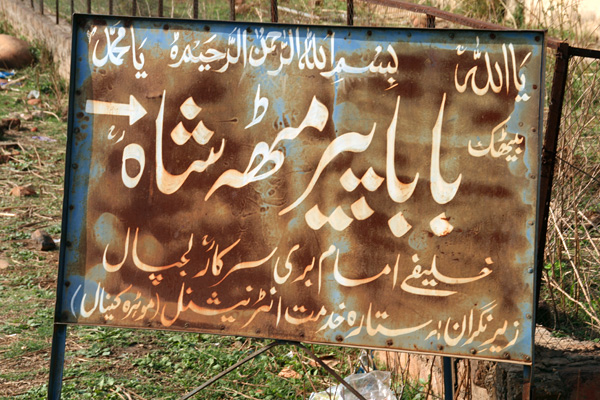 یا اللہ بسم اللہ الرحمن الرحیم یا محمد
بیٹھک
بابا پیر مٹھہ شاہ
خلیفے امام بری سرکار لجپال
زیر نگران: ستارہ خدمت انٹرنیشنل (موہڑہ کینال)